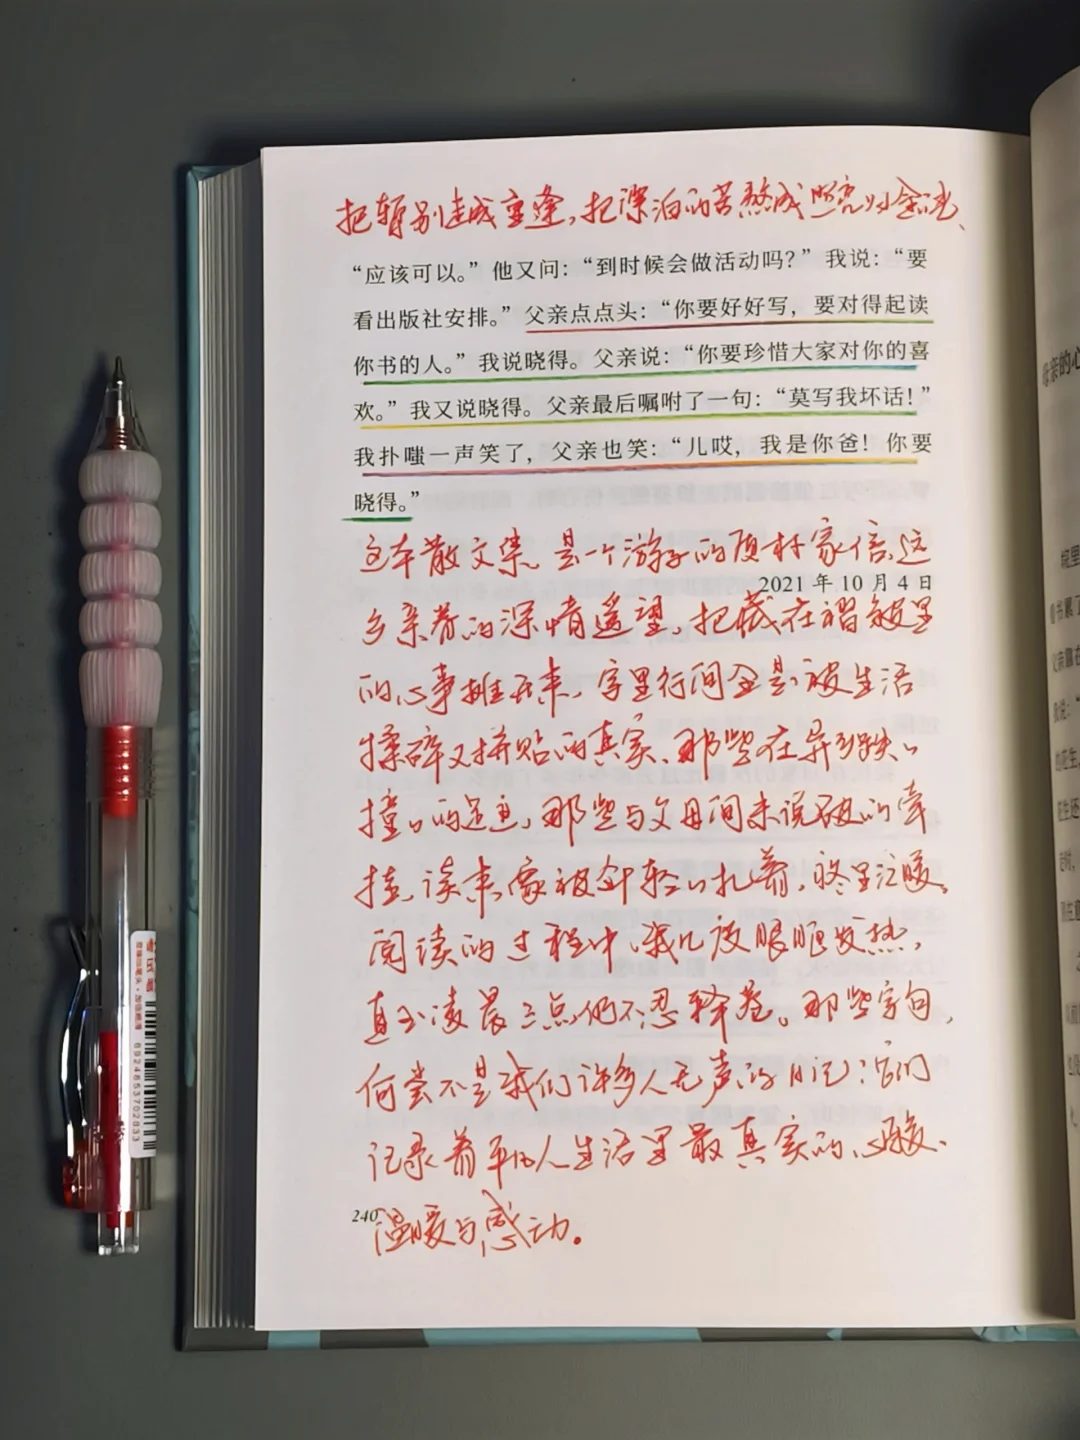 把暂别走成重逢，把漂泊的苦熬成照亮归途的
“应该可以。”他又问：“到时候会做活动吗？”我说：“要
看出版社安排。”父亲点点头：“你要好好写，要对得起读
你书的人。”我说晓得。父亲说：“你要珍惜大家对你的喜
欢。”我又说晓得。父亲最后嘱咐了一句：“莫写我坏话！”
我扑嗤一声笑了，父亲也笑：“儿哎，我是你爸！你要
晓得。”
这本散文集，是一个游子的质朴家信、返
2021 年 10 月 4 日
乡亲眷的深情遥望，把藏在褶皱里
的心事摊开来，字里行间全是被生活
揉碎又拼贴的真实、那些在异乡跌跌
撞撞的足迹，那些与父母间未说破的牵
挂，读来像被针轻轻扎着，疼里泛暖。
阅读的过程中，我几度眼眶发热，
直至凌晨三点仍不忍释卷。那些字句，
何尝不是我们许多人无声的日记：它们
记录着平凡人生活里最真实的心酸、
240
温暖与感动。
母亲的心
院里
父亲
我说：“
的花生，
花生还
6924853702833